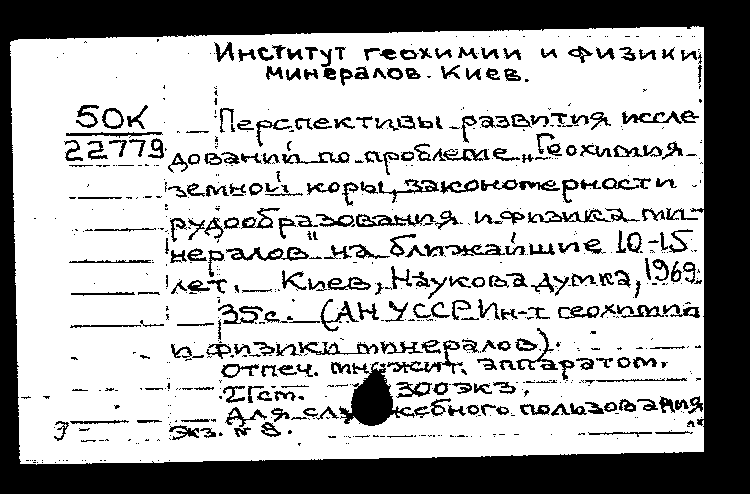 Институт геохимии и физики
минералов. Киев.
50К
22779
Перспективы развития иссле
дований по проблеме „Геохимия
земной коры, закономерности
рудообразования и физика ми-
нералов" на ближайшие 10-15
лет. Киев, Наукова думка, 1969
35с. (АН УССР Ин-т геохимии
и физики минералов).
Отпеч. множит. аппаратом.
300 экз.
Для служебного пользования
Экз. № 8.